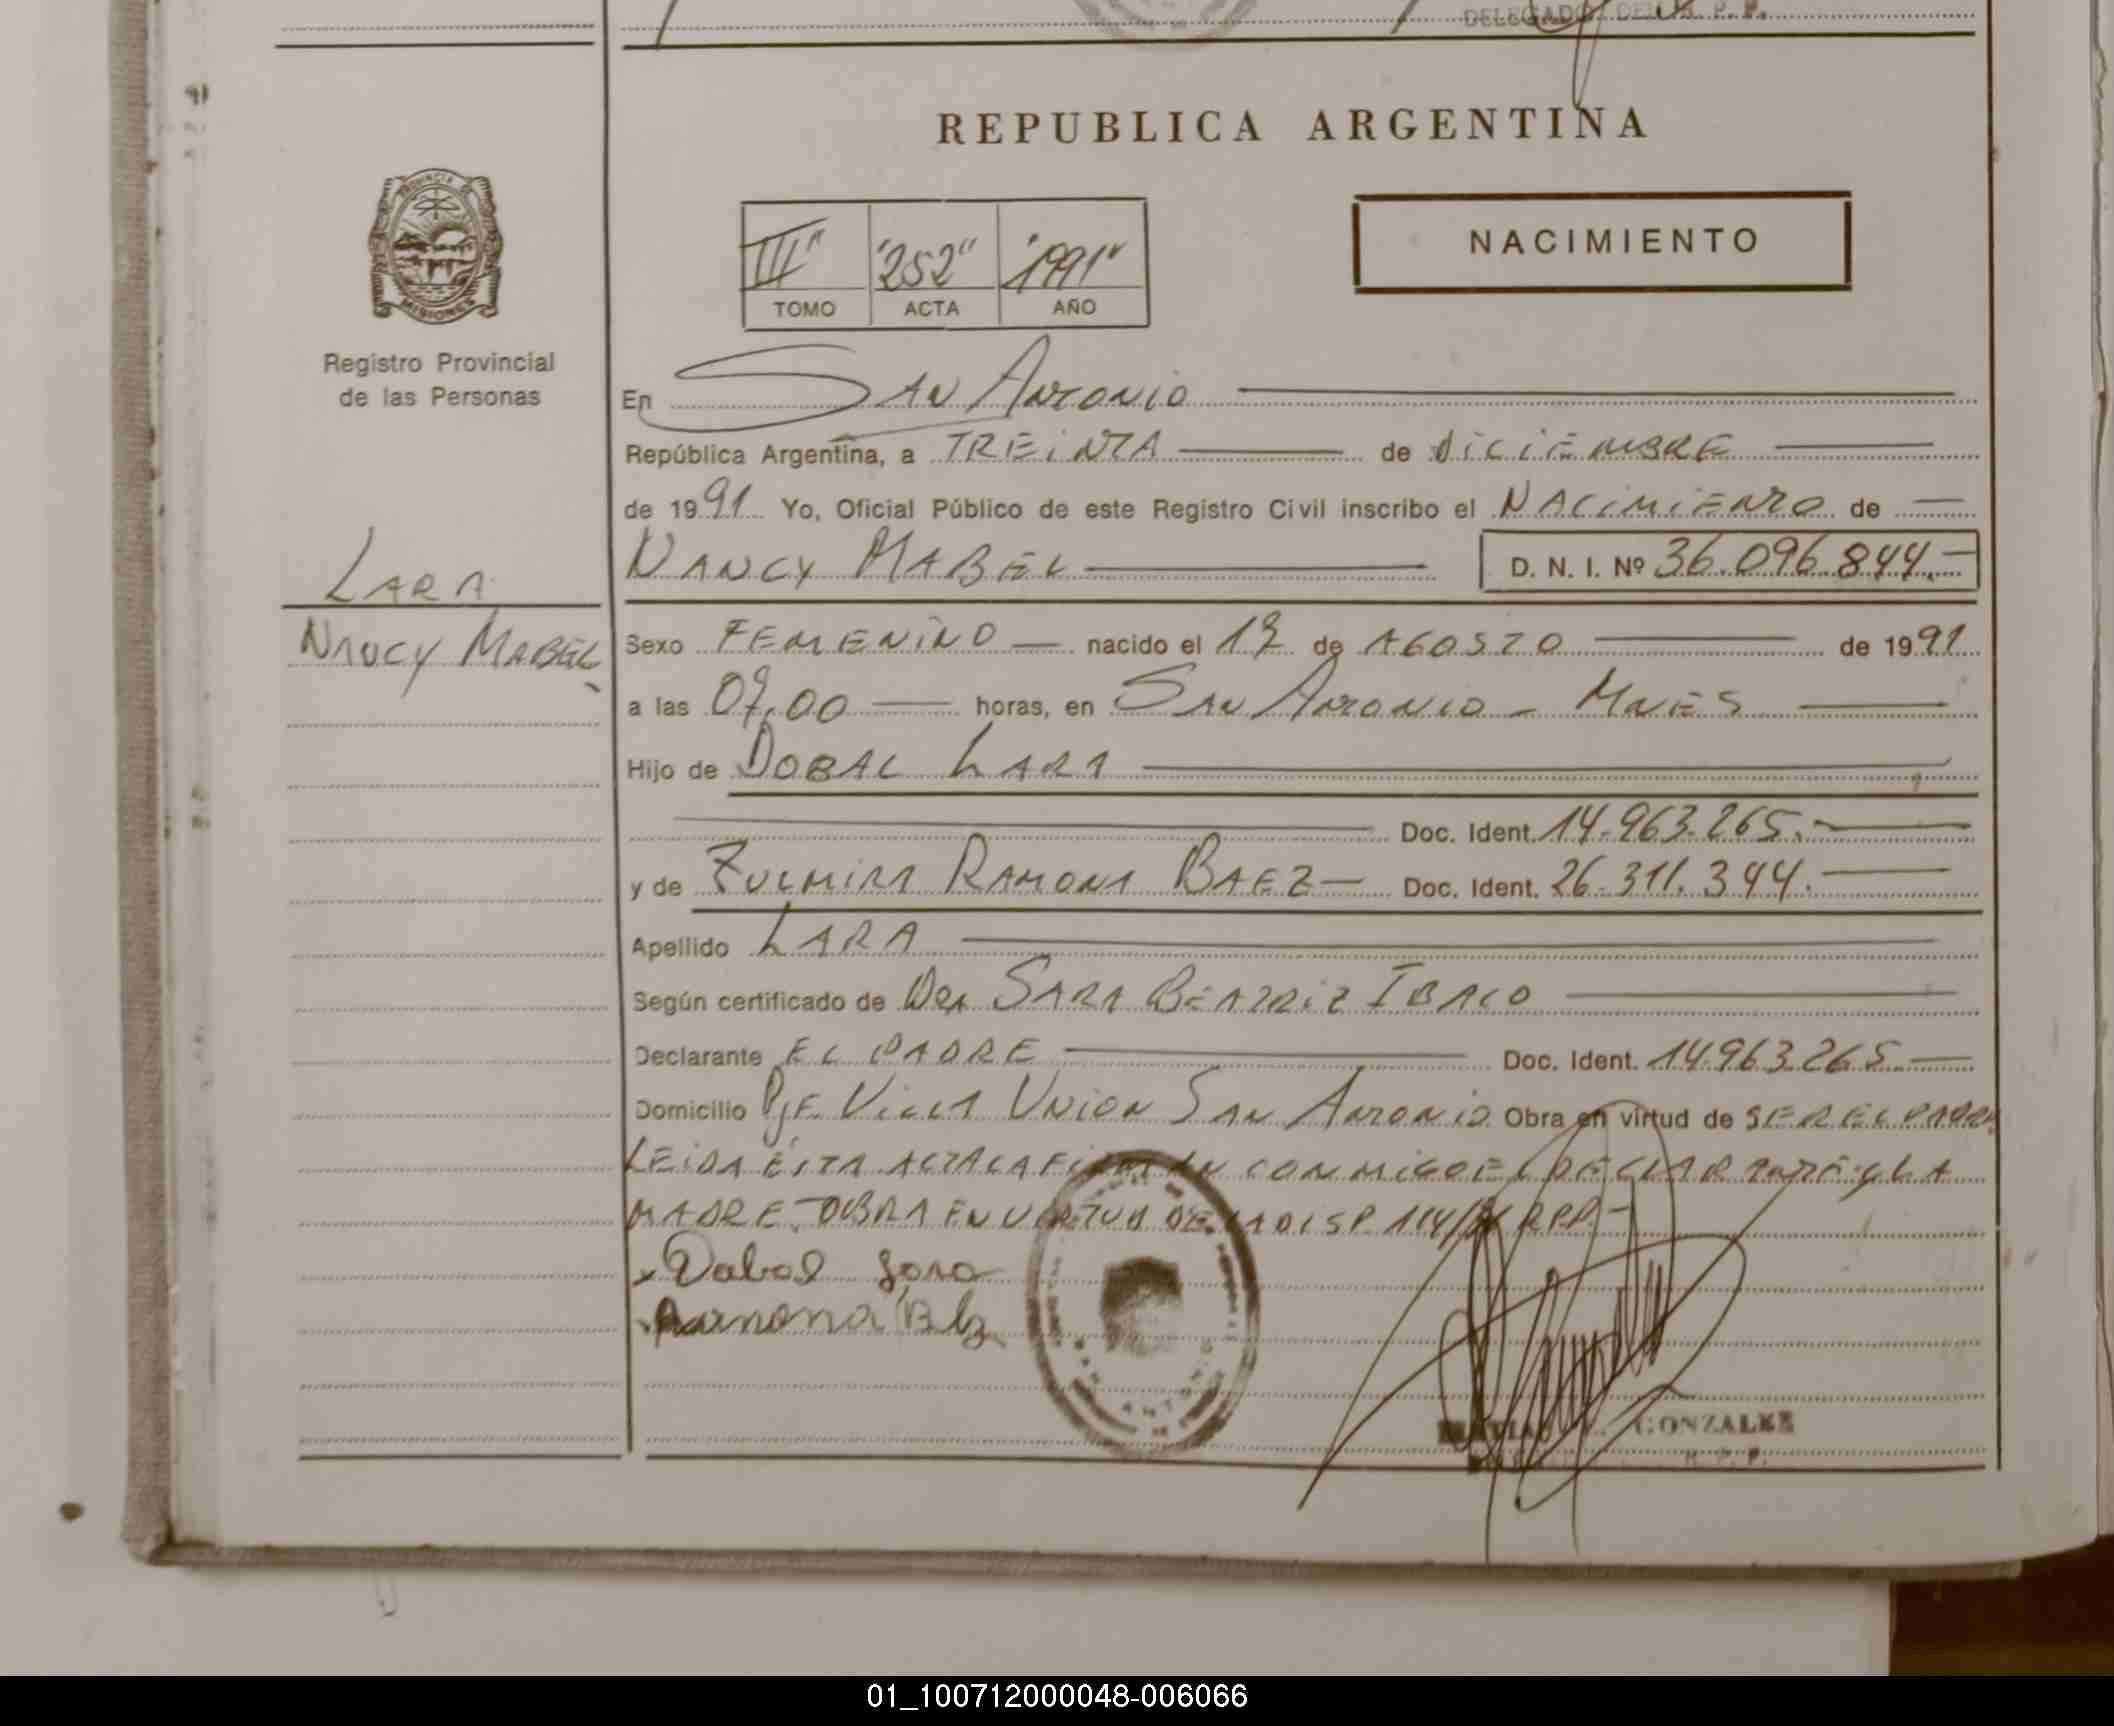 DELEGADO DE R. P. P.
REPUBLICA ARGENTINA
PROVINCIA DE
MISIONES
Registro Provincial
de las Personas
III" "252" "1991"
TOMO ACTA AÑO
NACIMIENTO
En SAN ANTONIO
República Argentina, a TREINTA de DICIEMBRE
de 1991 Yo, Oficial Público de este Registro Civil inscribo el NACIMIENTO de
NANCY MABEL D. N. I. Nº 36.096.844.-
LARA
NANCY MABEL
Sexo FEMENINO nacido el de AGOSTO de 1991
a las horas, en SAN ANTONIO - MNES
Hijo de DOBAL LARA
Doc. Ident. 14.963.265.-
y de ZULMIRA RAMONA BAEZ Doc. Ident. 26.311.344.
Apellido LARA
Según certificado de DRA SARA BEATRIZ
Declarante EL PADRE Doc. Ident. 14.963.265
Domicilio PJE VILLA UNION SAN ANTONIO Obra en virtud de SER EL PADRE
LEIDA ESTA ACTA LA FIRMAN CONMIGO EL DECLARANTE Y LA
MADRE- OBRA EN VIRTUD DE LA DISP. RPP.-
Dabal Lara
Ramona
SAN ANTONIO
GONZALEZ
R. P. P.
01_100712000048-006066